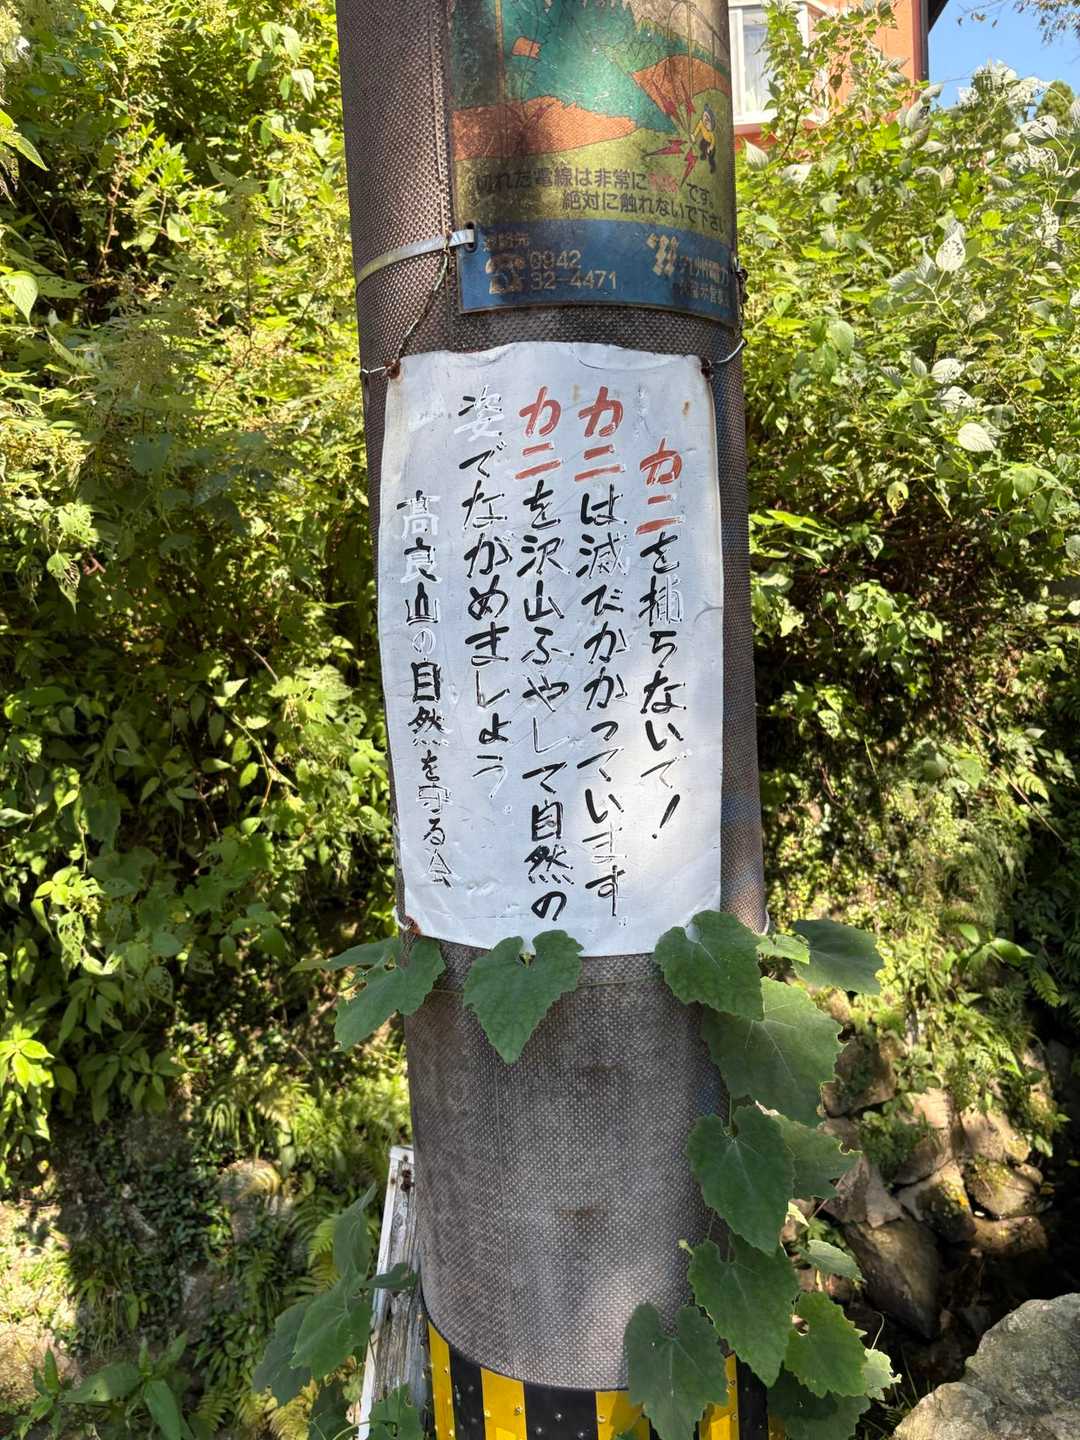 切れた電線は非常に
です。
絶対に触れないで下さい
0942
32-4471
カニを捕らないで!
カニは滅だかかっています。
カニを沢山ふやして自然の
姿でながめましょう。
高良山の自然を守る会